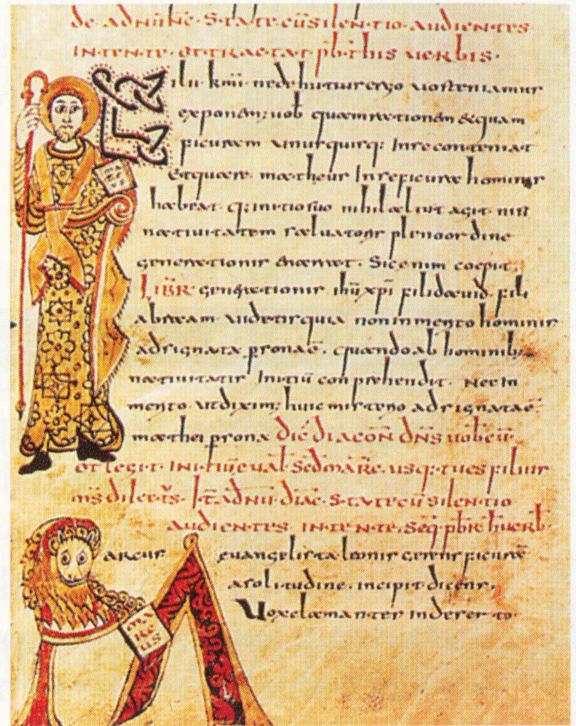 de adnūnt̄. State cū silentio audientes
intente. et tractat pb̄ this uerbis.
Filii kmi ne dihutius ergo uos teniamus
exponam; uob quam rationem et quam
ficuram unusquisq: in se conteniat
et quare matheus in se ficura hominis
habeat. q; initio suo nihil aliut agit nisi
natiuitatem saluatoris pleno ordine
generationis enarrat. Sic enim coepit.
LIBR generationis ihū xpi fili dauid. fili
abraam. uidetis quia non inmerito hominis
adsignata prona ē. quando ab hominis
natiuitatis initiū conprehendit. nec in
merito ut diximus huic misterio adsignata ē.
mathei prona dic̄ diacon̄ dn̄s uobcū
et legit. initiū eual̄ sed̄ marc̄. usq; tu es filius
ms dilectus. adnū diac̄. State cū silentio
audientes intente. seq pbr h uerb
Marcus euangelista leonis gerens ficura
a solitudine. incipit dicens.
Uox clamantes in deserto.
MARCUS